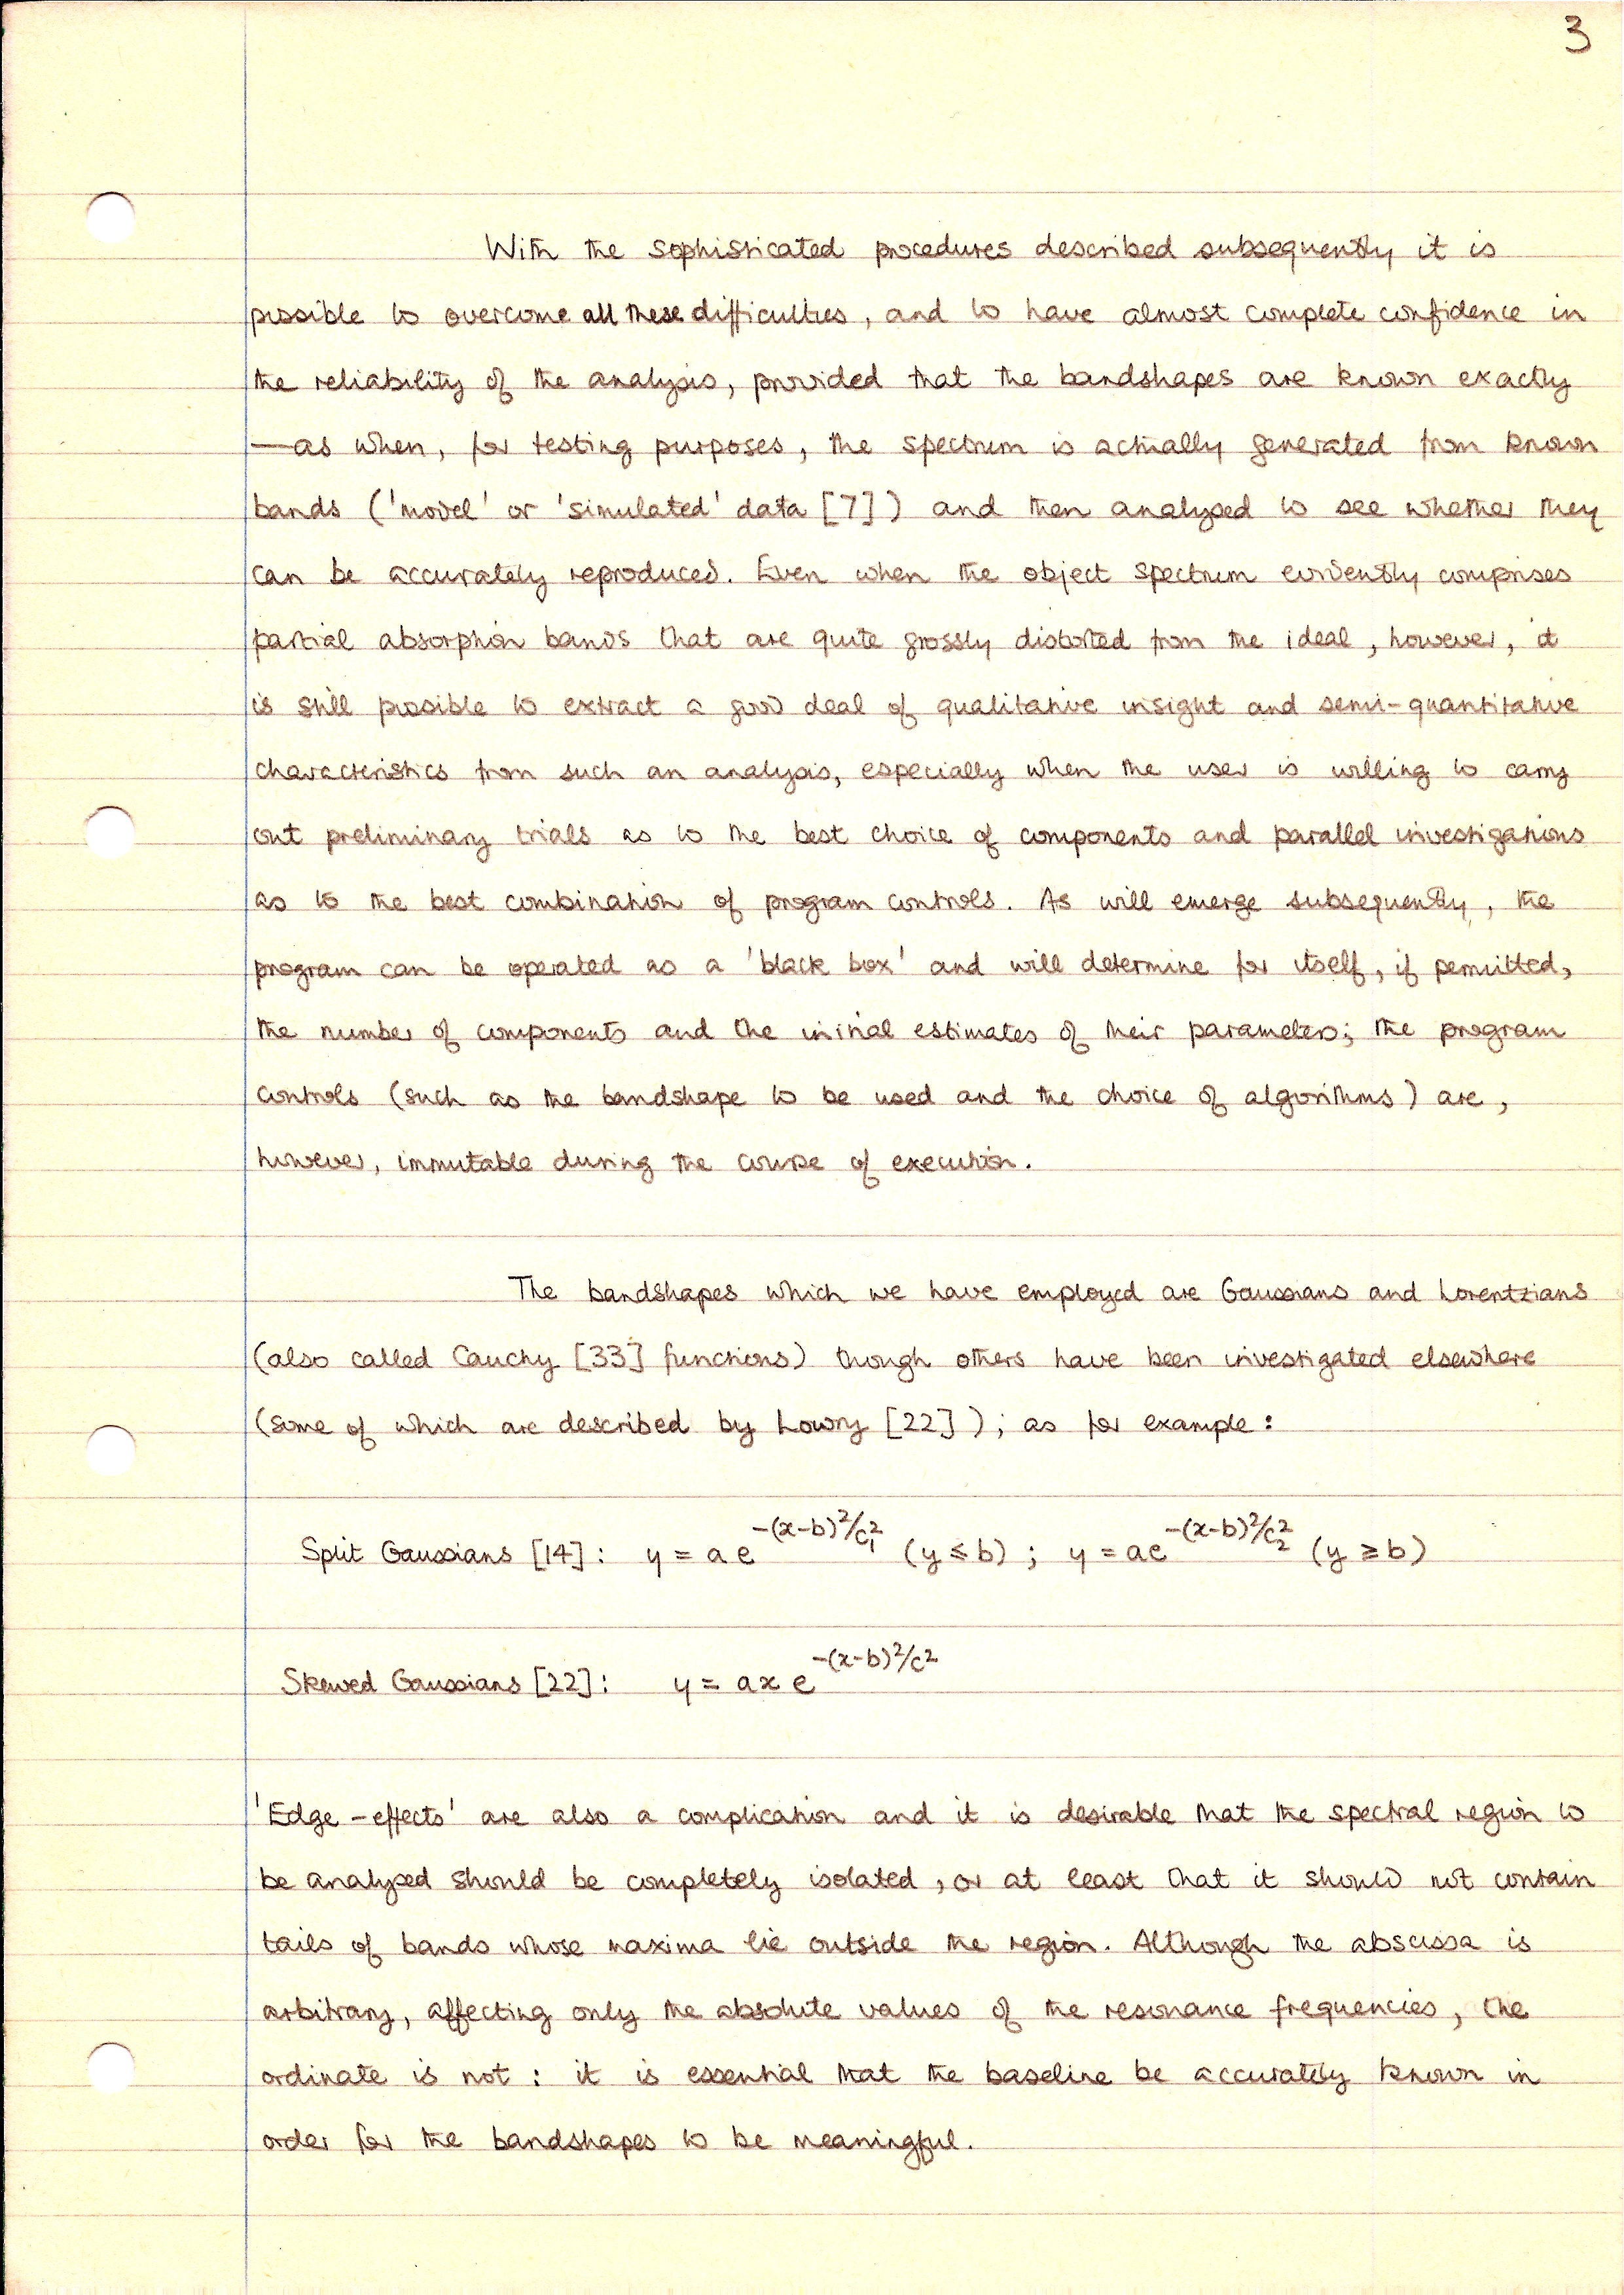 3
With the sophisticated procedures described subsequently it is
possible to overcome all these difficulties, and to have almost complete confidence in
the reliability of the analysis, provided that the bandshapes are known exactly
—as when, for testing purposes, the spectrum is actually generated from known
bands ('model' or 'simulated' data [7]) and then analysed to see whether they
can be accurately reproduced. Even when the object spectrum evidently comprises
partial absorption bands that are quite grossly distorted from the ideal, however, it
is still possible to extract a good deal of qualitative insight and semi-quantitative
characteristics from such an analysis, especially when the user is willing to carry
out preliminary trials as to the best choice of components and parallel investigations
as to the best combination of program controls. As will emerge subsequently, the
program can be operated as a 'black box' and will determine for itself, if permitted,
the number of components and the initial estimates of their parameters; the program
controls (such as the bandshape to be used and the choice of algorithms) are,
however, immutable during the course of execution.
The bandshapes which we have employed are Gaussians and Lorentzians
(also called Cauchy [33] functions) though others have been investigated elsewhere
(some of which are described by Lowry [22]); as for example:
Split Gaussians [14]: y = a e^{-(x-b)²/c₁²} (y ≤ b); y = a e^{-(x-b)²/c₂²} (y ≥ b)
Skewed Gaussians [22]: y = a x e^{-(x-b)²/c²}
'Edge-effects' are also a complication and it is desirable that the spectral region to
be analysed should be completely isolated, or at least that it should not contain
tails of bands whose maxima lie outside the region. Although the abscissa is
arbitrary, affecting only the absolute values of the resonance frequencies, the
ordinate is not: it is essential that the baseline be accurately known in
order for the bandshapes to be meaningful.